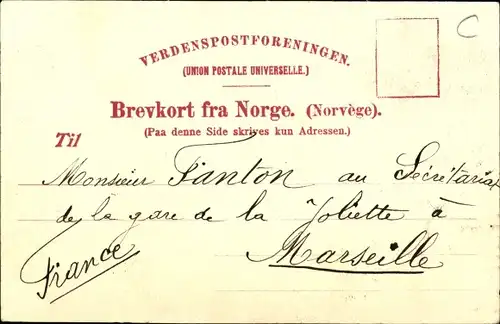 C
VERDENSPOSTFORENINGEN.
(UNION POSTALE UNIVERSELLE.)
Brevkort fra Norge. (Norvège).
(Paa denne Side skrives kun Adressen.)
Til
Monsieur Fanton au Secrétariat
de la gare de la Joliette à
Marseille
France